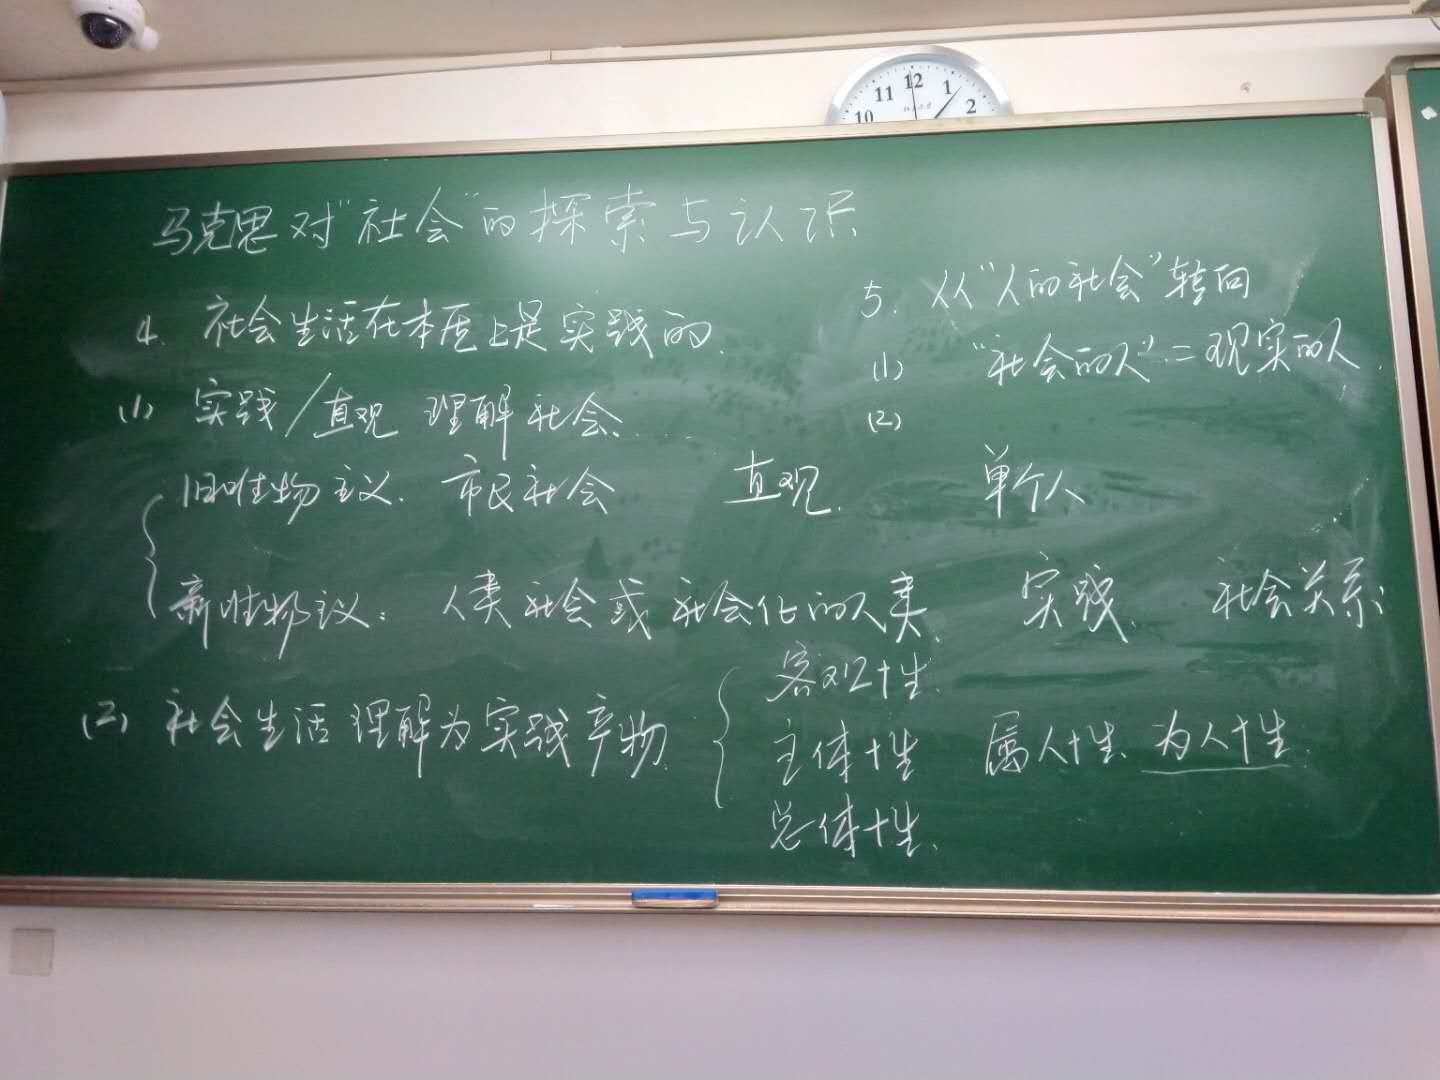 10 11 12 1 2
马克思对"社会"的探索与认识
4. 社会生活在本质上是实践的.
(1) 实践/直观 理解社会.
旧唯物主义. 市民社会 直观. 单个人
新唯物主义: 人类社会或社会化的人类. 实践. 社会关系:
(2) 社会生活理解为实践产物.
客观性.
主体性 属人性. 为人性.
总体性.
5. 从"人的社会"转向
(1) "社会的人"=现实的人.
(2)